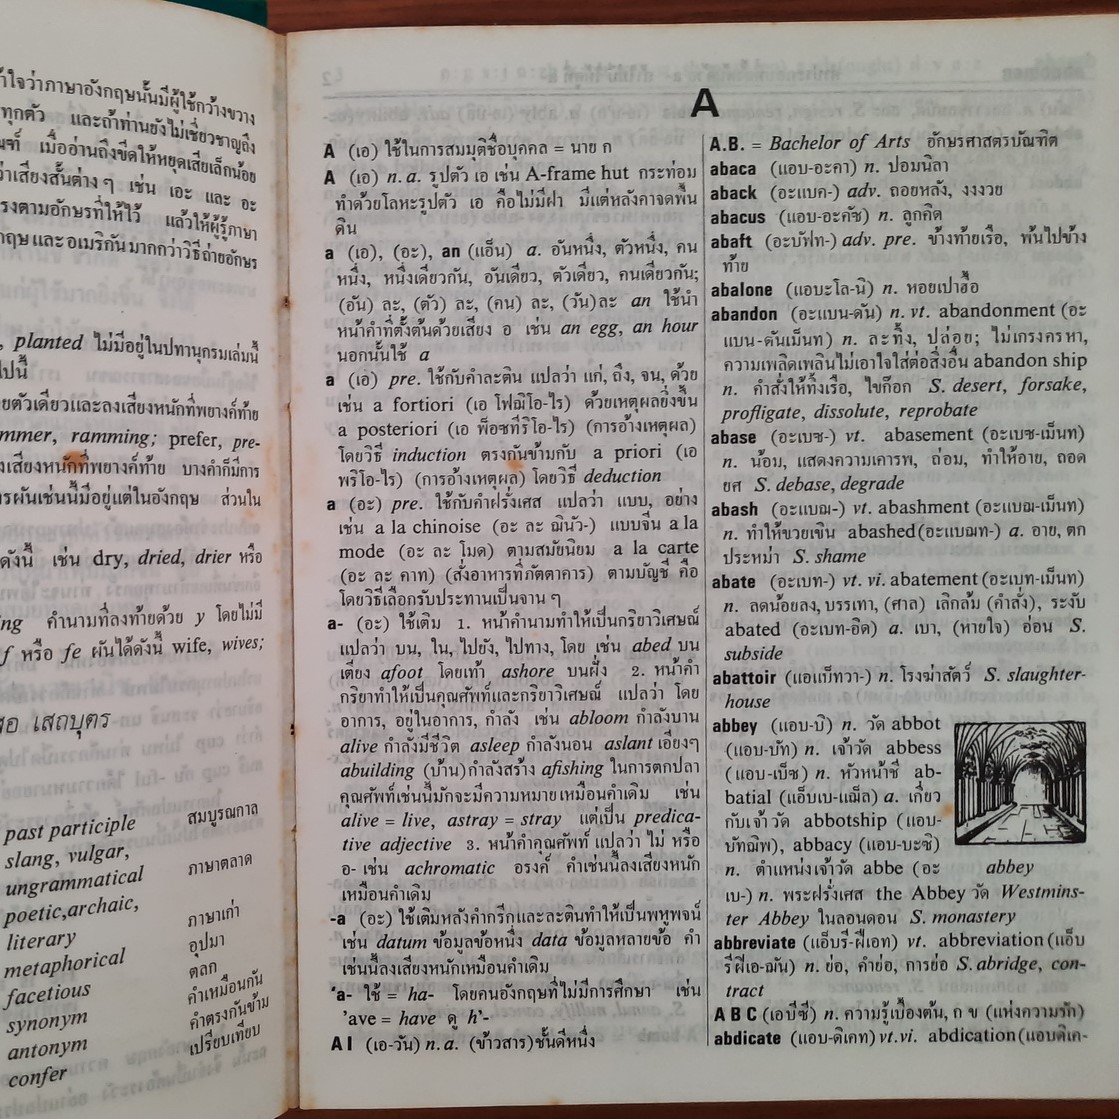 ้าใจว่าภาษาอังกฤษนั้นมีผู้ใช้กว้างขวาง
ทุกตัว และถ้าท่านยังไม่เชี่ยวชาญถึง
เมื่ออ่านถึงขีดให้หยุดเสียเล็กน้อย
ว่าเสียงสั้นต่าง ๆ เช่น เอะ และ อะ
รงตามอักษรที่ให้ไว้ แล้วให้ผู้รู้ภาษา
กฤษ และ อเมริกันมากกว่าวิธีถ่ายอักษร
, planted ไม่มีอยู่ในปทานุกรมเล่มนี้
ปนี้
ยตัวเดียวและลงเสียงหนักที่พยางค์ท้าย
mmer, ramming; prefer, pre-
งเสียงหนักที่พยางค์ท้าย บางคำก็มีการ
รผันเช่นนี้มีอยู่แต่ในอังกฤษ ส่วนใน
ดังนี้ เช่น dry, dried, drier หรือ
ing คำนามที่ลงท้ายด้วย y โดยไม่มี
f หรือ fe ผันได้ดังนี้ wife, wives;
สอ เสถบุตร
past participle สมบูรณกาล
slang, vulgar,
ungrammatical ภาษาตลาด
poetic,archaic,
literary ภาษาเก่า
metaphorical อุปมา
facetious ตลก
synonym คำเหมือนกัน
antonym คำตรงกันข้าม
confer เปรียบเทียบ
A
A (เอ) ใช้ในการสมมุติชื่อบุคคล = นาย ก
A (เอ) n. a. รูปตัว เอ เช่น A-frame hut กระท่อม
ทำด้วยโลหะรูปตัว เอ คือไม่มีฝา มีแต่หลังคาจดพื้น
ดิน
a (เอ), (อะ), an (แอ็น) a. อันหนึ่ง, ตัวหนึ่ง, คน
หนึ่ง, หนึ่งเดียวกัน, อันเดียว, ตัวเดียว, คนเดียวกัน;
(อัน) ละ, (ตัว) ละ, (คน) ละ, (วัน)ละ an ใช้นำ
หน้าคำที่ตั้งต้นด้วยเสียง อ เช่น an egg, an hour
นอกนั้นใช้ a
a (เอ) pre. ใช้กับคำละติน แปลว่า แก่, ถึง, จน, ด้วย
เช่น a fortiori (เอ โฟฌิโอ-ไร) ด้วยเหตุผลยิ่งขึ้น
a posteriori (เอ พ็อซทีริโอ-ไร) (การอ้างเหตุผล)
โดยวิธี induction ตรงกันข้ามกับ a priori (เอ
พริโอ-ไร) (การอ้างเหตุผล) โดยวิธี deduction
a (อะ) pre. ใช้กับคำฝรั่งเศส แปลว่า แบบ, อย่าง
เช่น a la chinoise (อะ ละ ฌินัว-) แบบจีน a la
mode (อะ ละ โมด) ตามสมัยนิยม a la carte
(อะ ละ คาท) (สั่งอาหารที่ภัตตาคาร) ตามบัญชี คือ
โดยวิธีเลือกรับประทานเป็นจาน ๆ
a- (อะ) ใช้เติม 1. หน้าคำนามทำให้เป็นกริยาวิเศษณ์
แปลว่า บน, ใน, ไปยัง, ไปทาง, โดย เช่น abed บน
เตียง afoot โดยเท้า ashore บนฝั่ง 2. หน้าคำ
กริยาทำให้เป็นคุณศัพท์และกริยาวิเศษณ์ แปลว่า โดย
อาการ, อยู่ในอาการ, กำลัง เช่น abloom กำลังบาน
alive กำลังมีชีวิต asleep กำลังนอน aslant เอียงๆ
abuilding (บ้าน)กำลังสร้าง afishing ในการตกปลา
คุณศัพท์เช่นนี้มักจะมีความหมายเหมือนคำเดิม เช่น
alive = live, astray = stray แต่เป็น predica-
tive adjective 3. หน้าคำคุณศัพท์ แปลว่า ไม่ หรือ
อ- เช่น achromatic อรงค์ คำเช่นนี้ลงเสียงหนัก
เหมือนคำเดิม
-a (อะ) ใช้เติมหลังคำกรีกและละตินทำให้เป็นพหูพจน์
เช่น datum ข้อมูลข้อหนึ่ง data ข้อมูลหลายข้อ คำ
เช่นนี้ลงเสียงหนักเหมือนคำเดิม
'a- ใช้ = ha- โดยคนอังกฤษที่ไม่มีการศึกษา เช่น
'ave = have ดู h'-
A I (เอ-วัน) n. a. (ข้าวสาร)ชั้นดีหนึ่ง
A.B. = Bachelor of Arts อักษรศาสตรบัณฑิต
abaca (แอบ-อะคา) n. ปอมนิลา
aback (อะแบค-) adv. ถอยหลัง, งงงวย
abacus (แอบ-อะคัซ) n. ลูกคิด
abaft (อะบัฟท-) adv. pre. ข้างท้ายเรือ, พ้นไปข้าง
ท้าย
abalone (แอบะโล-นิ) n. หอยเป๋าฮื้อ
abandon (อะแบน-ดัน) n. vt. abandonment (อะ
แบน-ดันเม็นท) n. ละทิ้ง, ปล่อย; ไม่เกรงครหา,
ความเพลิดเพลินไม่เอาใจใส่ต่อสิ่งอื่น abandon ship
n. คำสั่งให้ทิ้งเรือ, ไข่ก๊อก S. desert, forsake,
profligate, dissolute, reprobate
abase (อะเบซ-) vt. abasement (อะเบซ-เม็นท)
n. น้อม, แสดงความเคารพ, ถ่อม, ทำให้อาย, ถอด
ยศ S. debase, degrade
abash (อะแบฌ-) vt. abashment (อะแบฌ-เม็นท)
n. ทำให้ขวยเขิน abashed (อะแบฌท-) a. อาย, ตก
ประหม่า S. shame
abate (อะเบท-) vt. vi. abatement (อะเบท-เม็นท)
n. ลดน้อยลง, บรรเทา, (ศาล) เลิกล้ม (คำสั่ง), ระงับ
abated (อะเบท-อิด) a. เบา, (หายใจ) อ่อน S.
subside
abattoir (แอแบ็ททวา-) n. โรงฆ่าสัตว์ S. slaughter-
house
abbey (แอบ-บิ) n. วัด abbot
(แอบ-บัท) n. เจ้าวัด abbess
(แอบ-เบ็ซ) n. หัวหน้าชี ab-
batial (แอ็บเบ-แฌ็ล) a. เกี่ยว
กับเจ้าวัด abbotship (แอบ-
บัทฌิพ), abbacy (แอบ-บะซิ)
n. ตำแหน่งเจ้าวัด abbe (อะ
abbey
เบ-) n. พระฝรั่งเศส the Abbey วัด Westmins-
ter Abbey ในลอนดอน S. monastery
abbreviate (แอ็บรี-ฝีเอท) vt. abbreviation (แอ็บ
รีฝีเอ-ฌัน) n. ย่อ, คำย่อ, การย่อ S. abridge, con-
tract
A B C (เอบีซี) n. ความรู้เบื้องต้น, ก ข (แห่งความรัก)
abdicate (แอบ-ดิเคท) vt. vi. abdication (แอบดิเค-